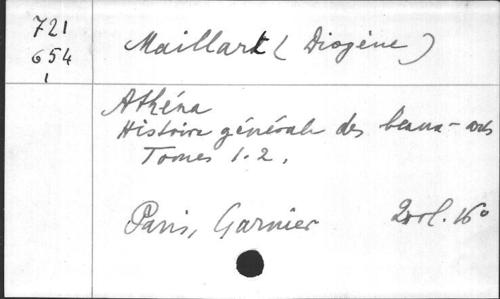 721
654
1
Maillart (Diogène)
Athéna
Histoire générale des beaux-arts
Tomes 1-2.
Paris, Garnier 2 vol. 16°